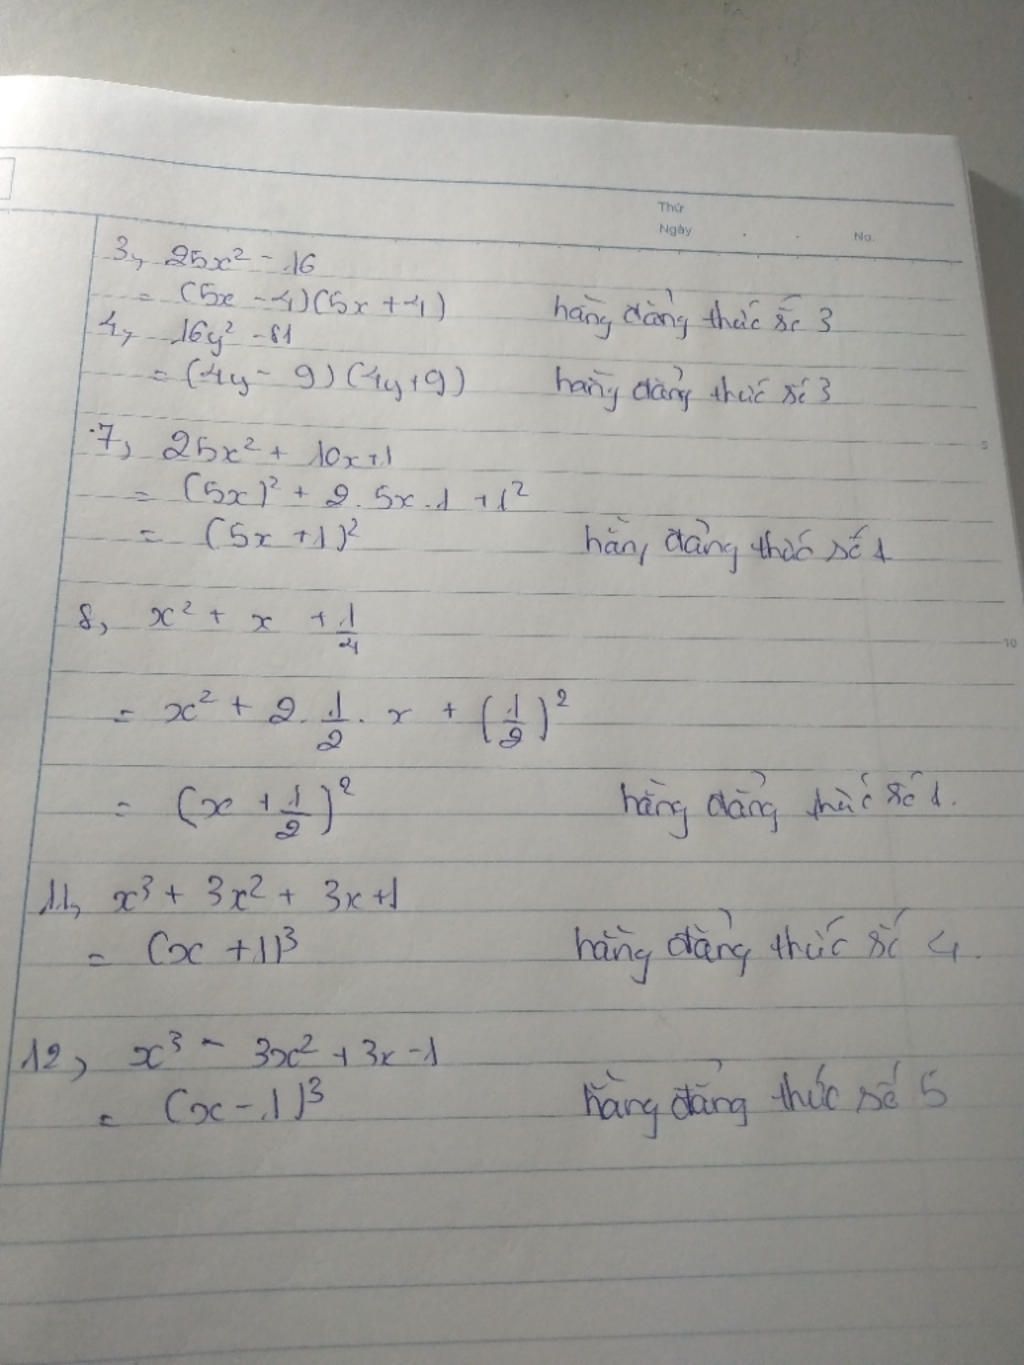 Thứ
Ngày . . No.
3, 25x² - 16
= (5x - 4)(5x + 4) hằng đẳng thức số 3
4, 16y² - 81
= (4y - 9)(4y + 9) hằng đẳng thức số 3
5
7, 25x² + 10x + 1
= (5x)² + 2.5x.1 + 1²
= (5x + 1)² hằng đẳng thức số 1
8, x² + x + 1/4
10
= x² + 2. 1/2 . x + (1/2)²
= (x + 1/2)² hằng đẳng thức số 1.
11, x³ + 3x² + 3x + 1
= (x + 1)³ hằng đẳng thức số 4.
12, x³ - 3x² + 3x - 1
= (x - 1)³ hằng đẳng thức số 5